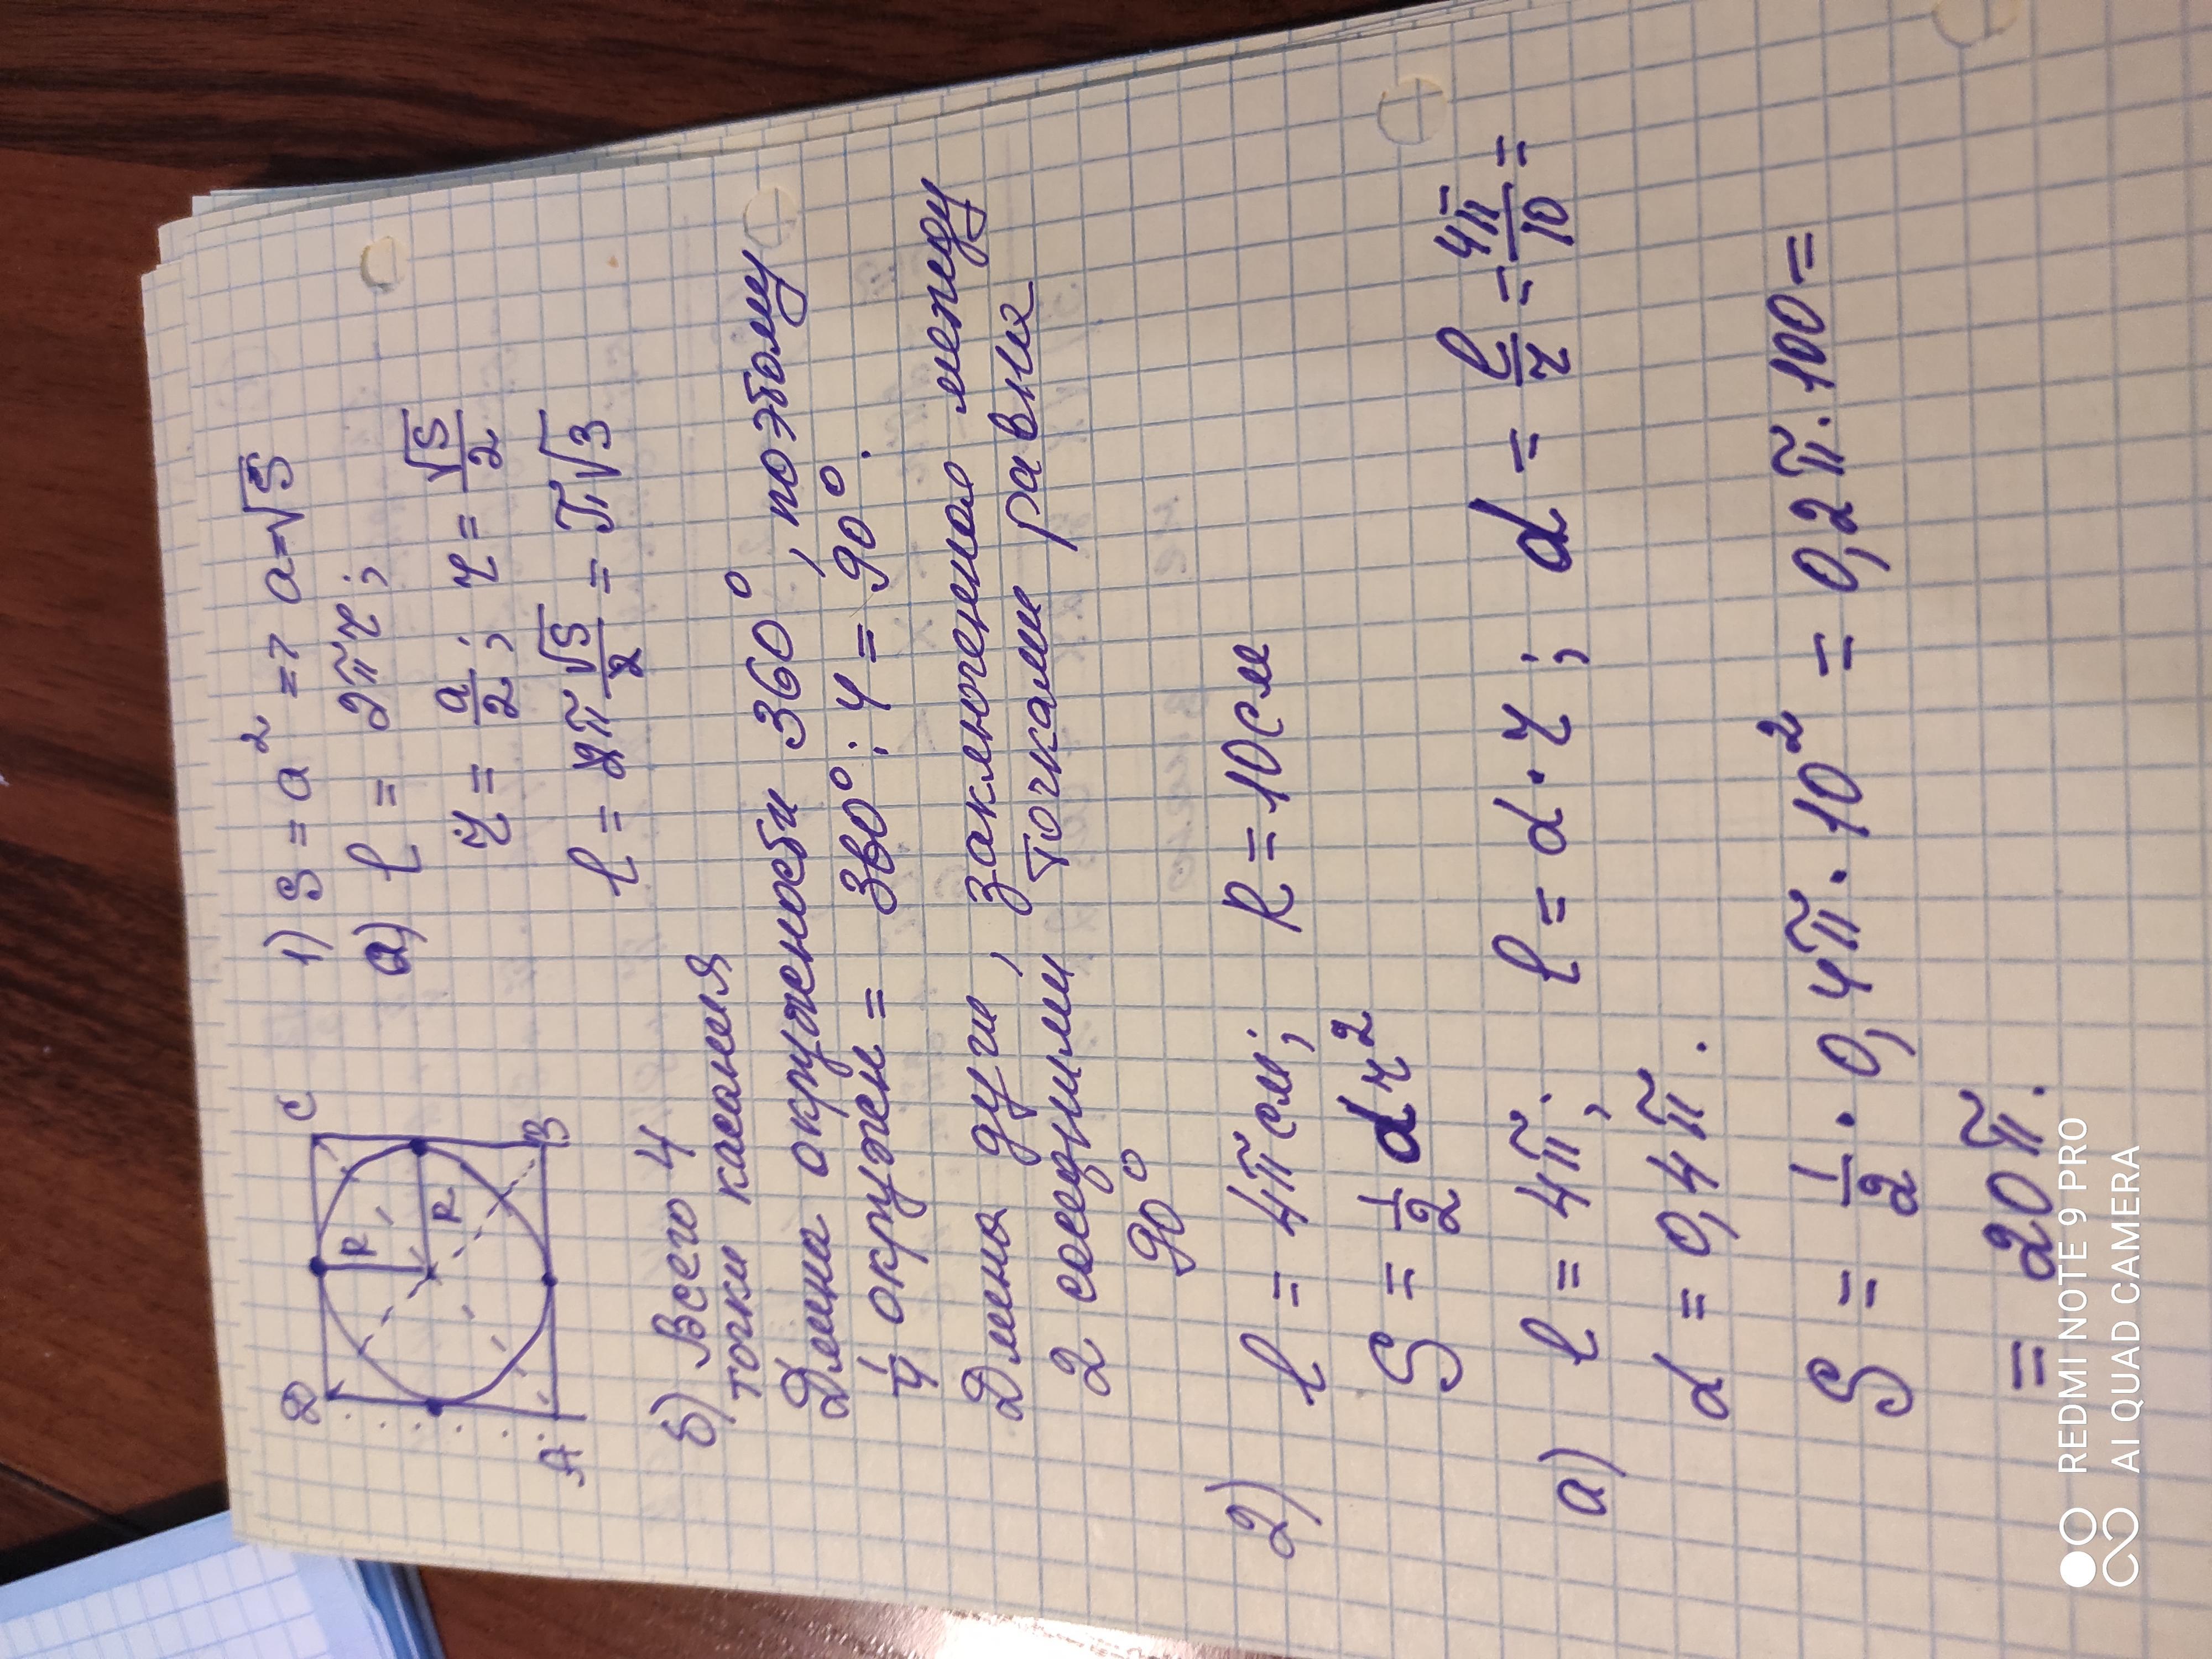 D C
R
R
A B
1) S = a² => a=√S
а) l = 2πr;
r = a/2; r = √S/2
l = 2π √S/2 = π√3
б) Всего 4
точки касания
Длина окружности 360°, поэтому
1/4 окружн = 360° : 4 = 90°.
Длина дуги, заключенная между
2 соседними точками равна
90°
2) l = 4π см; R = 10см
S = 1/2 αr²
а) l = 4π; l = α · r; α = l/r = 4π/10 =
α = 0,4π.
S = 1/2 · 0,4π · 10² = 0,2π · 100 =
= 20π.
REDMI NOTE 9 PRO
AI QUAD CAMERA